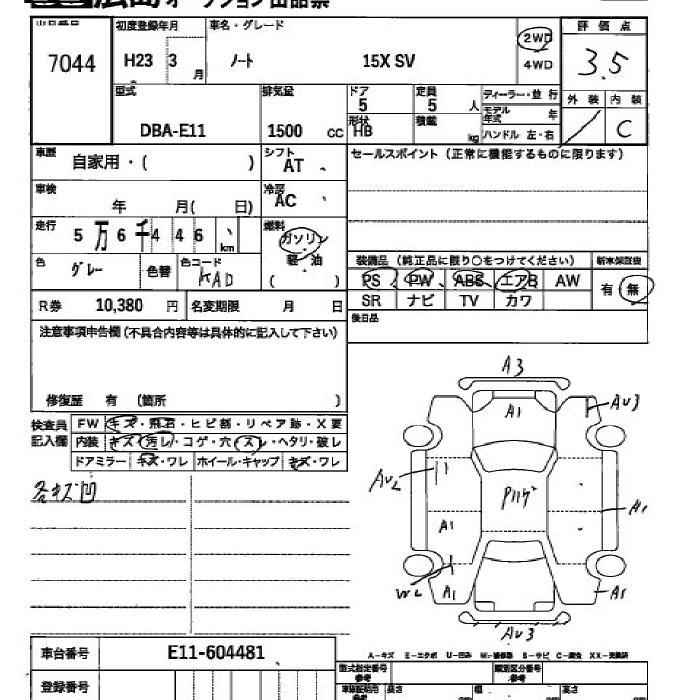 広島 オークション 出品票
出品番号 7044
初度登録年月 H23 3 月
車名・グレード ノート 15X SV
2WD
4WD
評価点 3.5
外装 内装 C
型式 DBA-E11
排気量 1500 cc
ドア 5
形状 HB
定員 5 人
積載 kg
ディーラー・並行
モデル年式 年
ハンドル 左・右
車歴 自家用・( )
シフト AT
セールスポイント (正常に機能するものに限ります)
車検 年 月( 日)
冷房 AC
走行 5万6千446 km
燃料 ガソリン
軽・油
( )
色 グレー 色替 色コード KAD
装備品 (純正品に限り○をつけてください) 新車保証書
PS PW ABS エアB AW 有 無
SR ナビ TV カワ
R券 10,380 円 名変期限 月 日
後日品
注意事項申告欄 (不具合内容等は具体的に記入して下さい)
修復歴 有 (箇所 )
検査員記入欄
FW キズ・飛石・ヒビ割・リペア跡・X要
内装 キズ・汚レ・コゲ・穴・スレ・ヘタリ・破レ
ドアミラー キズ・ワレ ホイール・キャップ キズ・ワレ
各キズ凹
A3
A1
AU3
AU2
A1
A1
W2
A1
A1
AU3
A-キズ E-エクボ U-凹み W-補修跡 S-サビ C-腐食 XX-交換済
車台番号 E11-604481
登録番号
型式指定番号 参考
類別区分番号 参考
長さ 幅 高さ